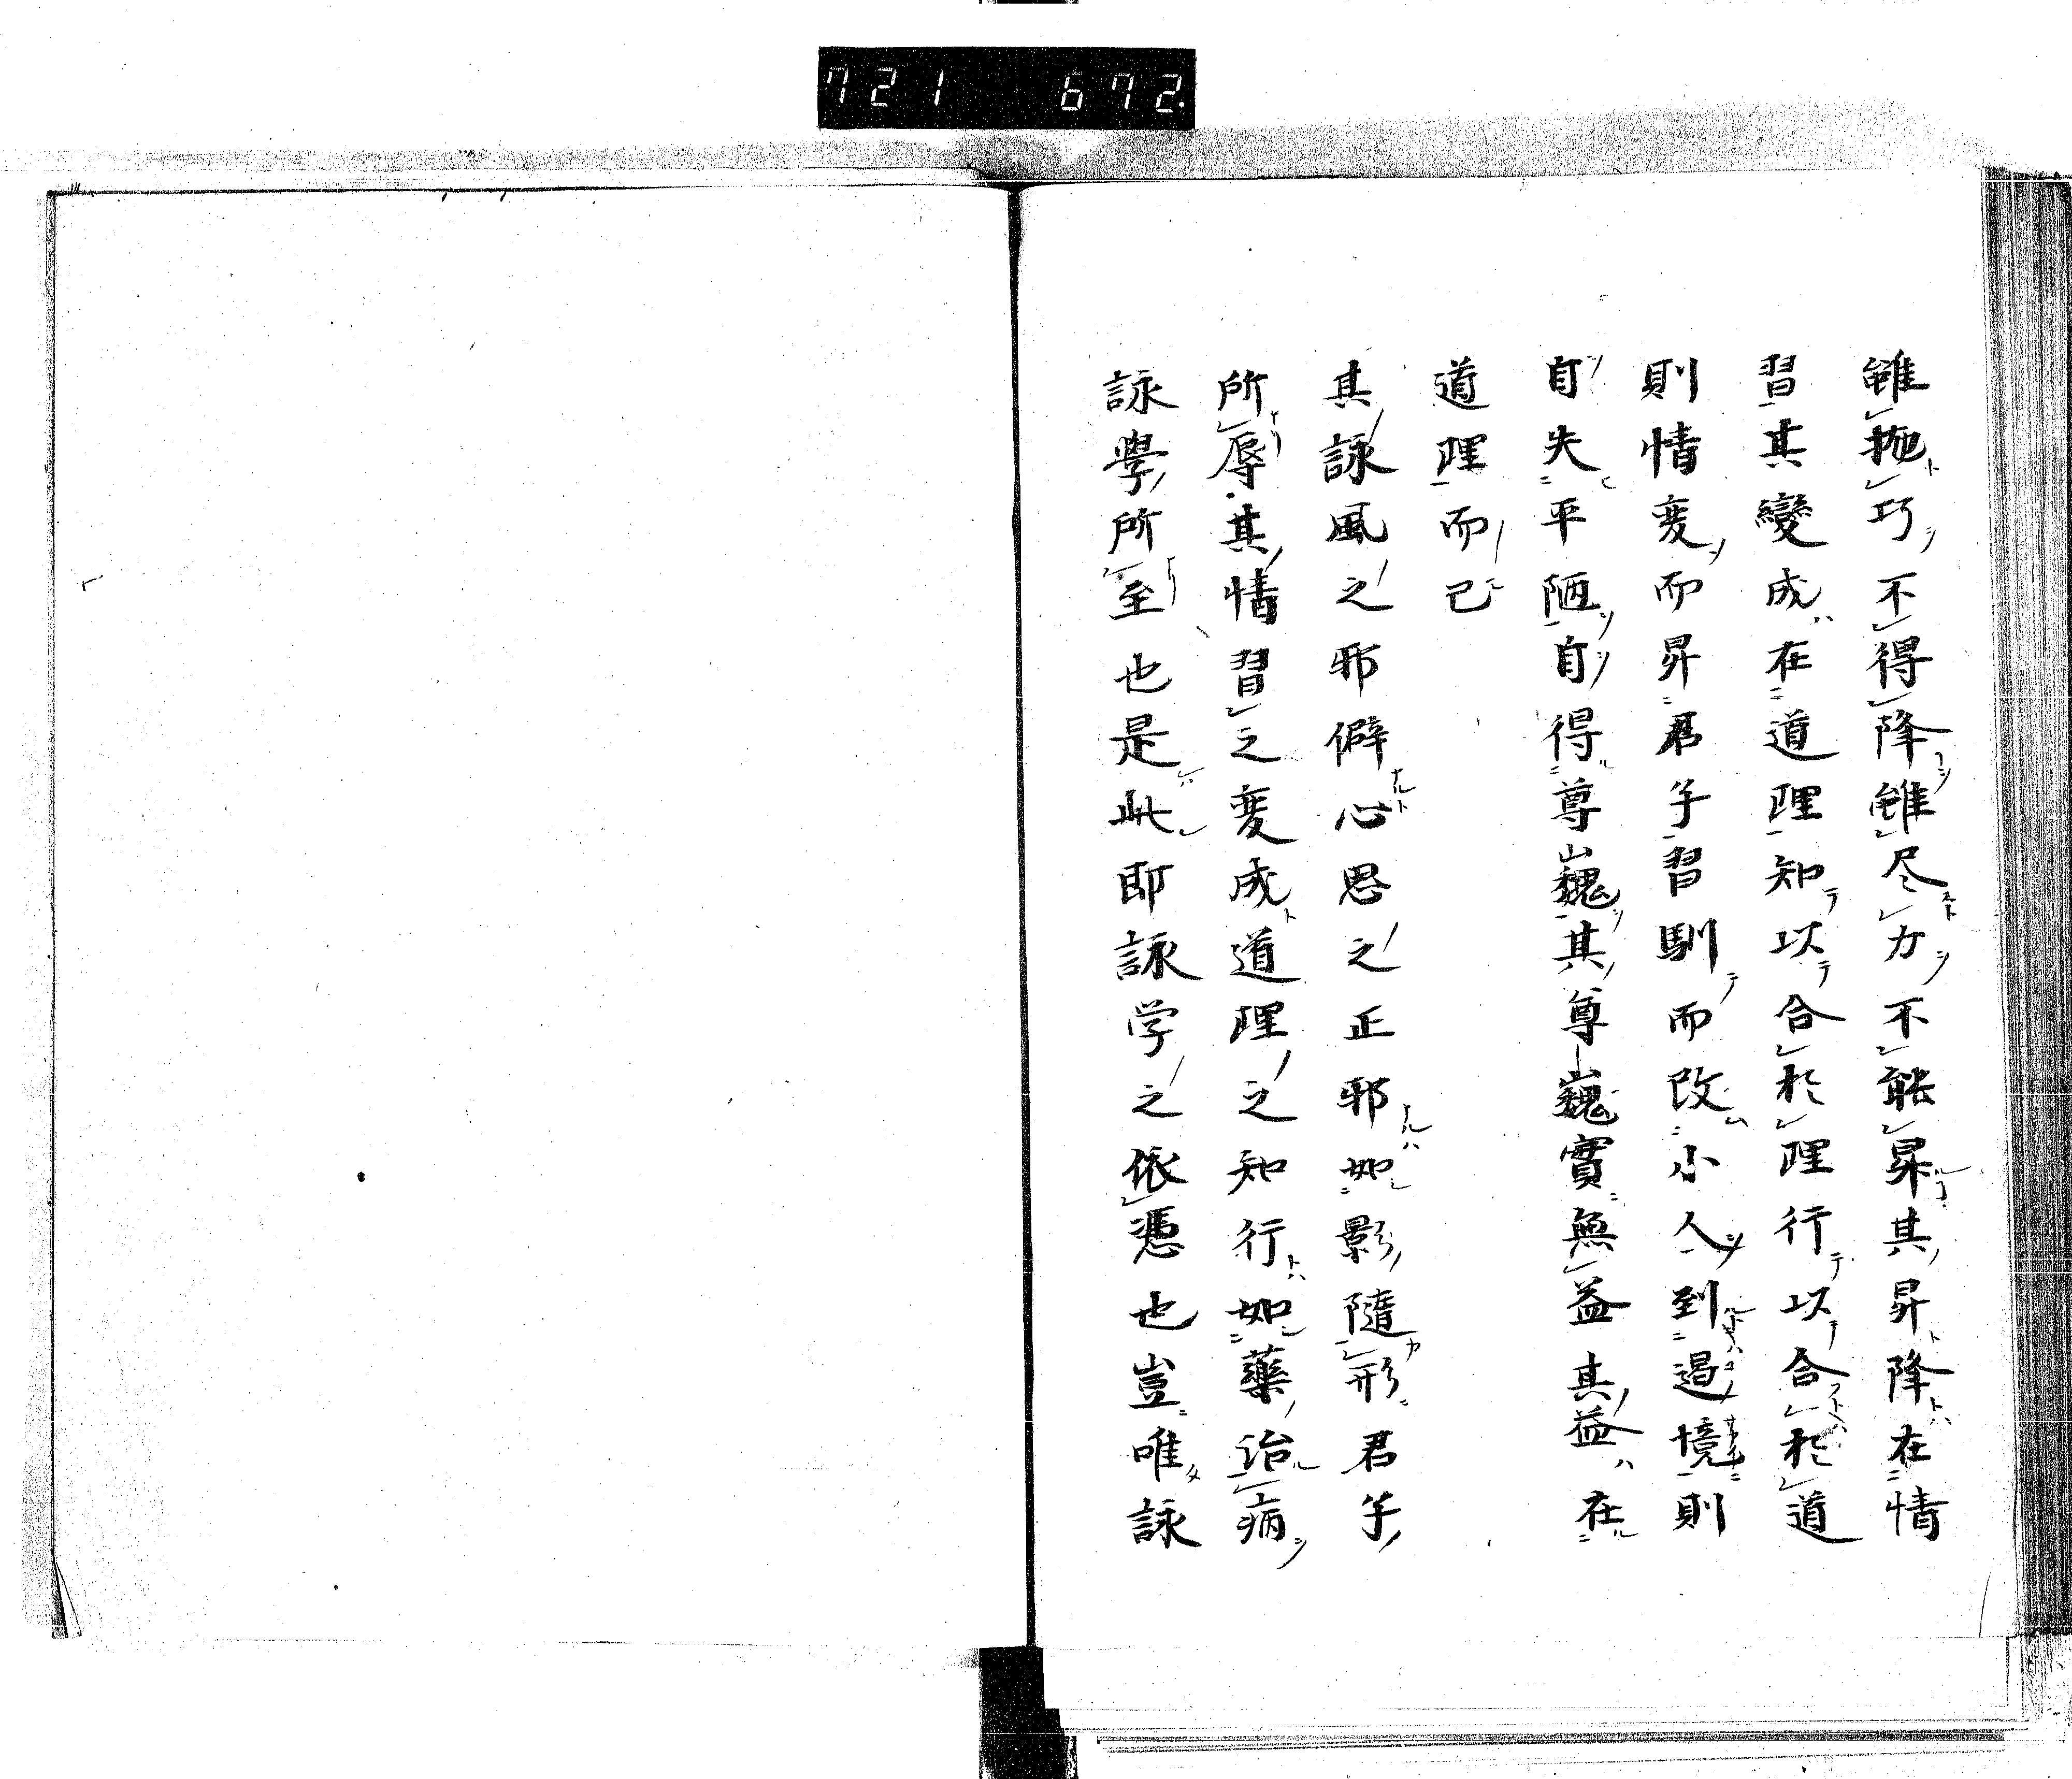 721 672.
雖拖巧不得降雖尽力不能昇其昇降在情
習其變成在道理知以合於理行以合於道
則情変而昇君子習馴而改小人到遏境則
自失平陋自得尊巍其尊巍實無益其益在
道理而已
其詠風之邪僻心思之正邪如影隨形君子
所辱其情習之変成道理之知行如藥治病
詠學所至也是此即詠学之依憑也豈唯詠